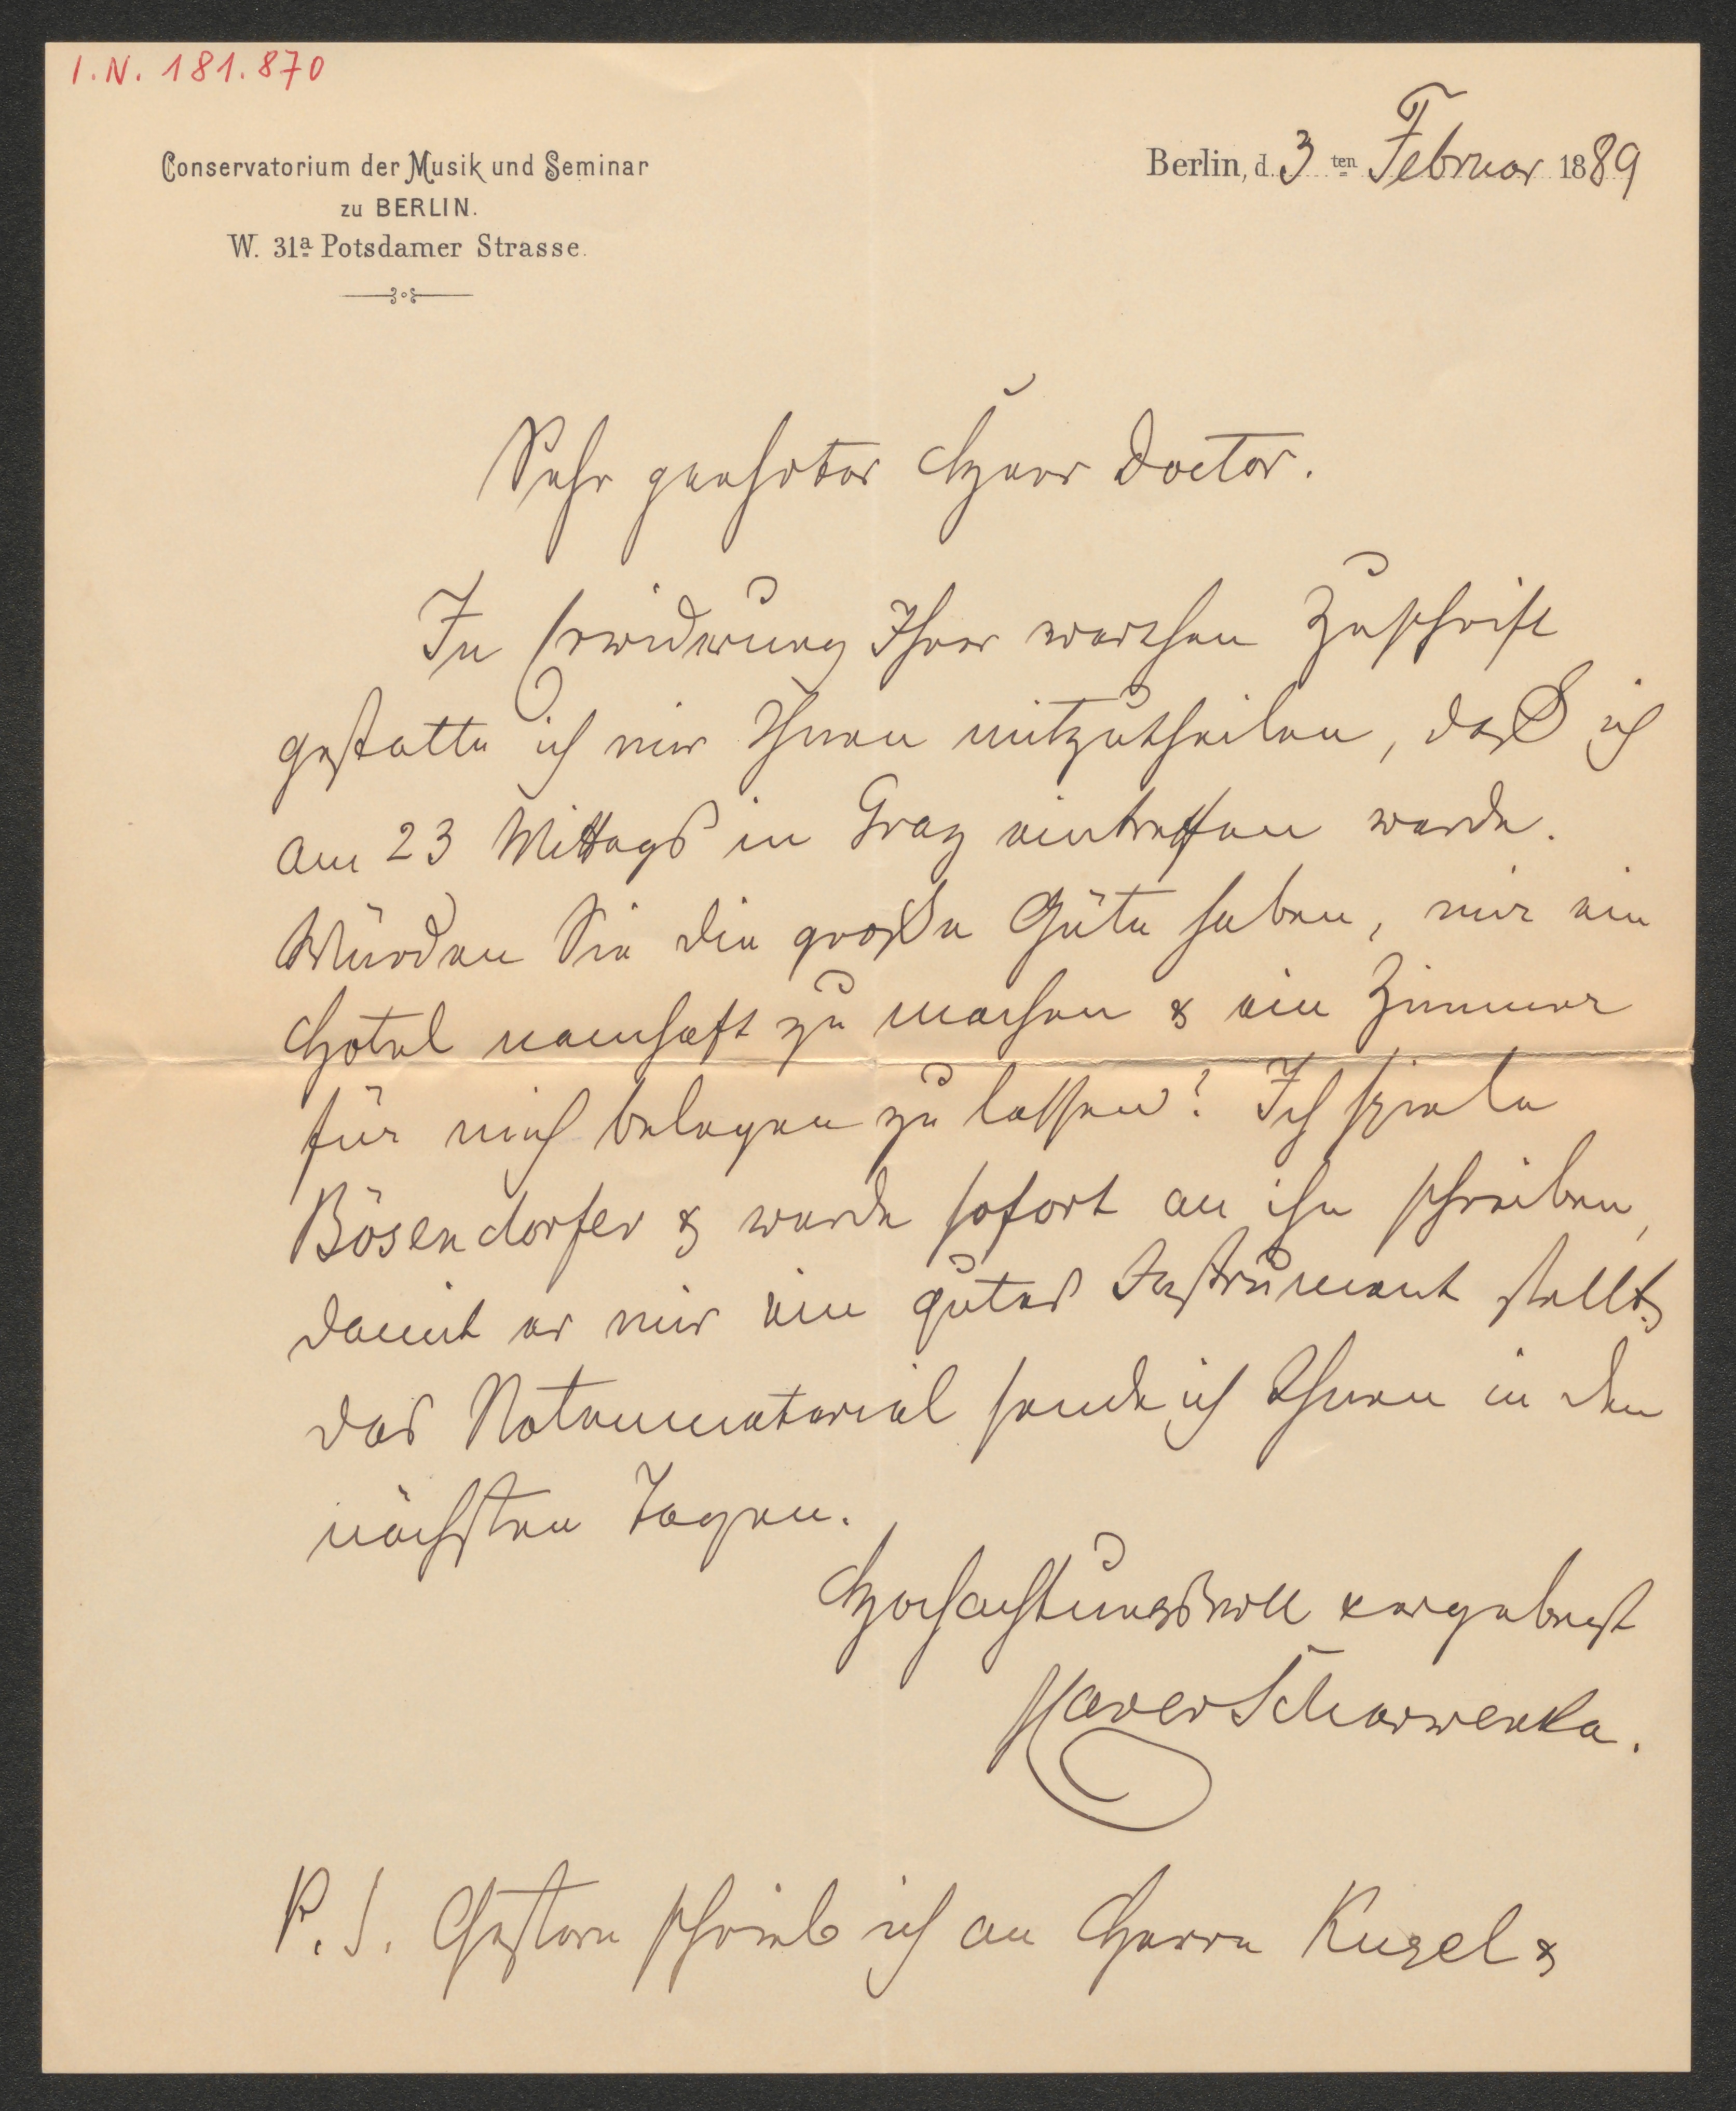 I.N. 181.870
Conservatorium der Musik und Seminar
zu BERLIN.
W. 31a Potsdamer Strasse.
Berlin, d. 3 ten Februar 1889
Sehr geehrter Herr Doctor.
In Erwiderung Ihrer werthen Zuschrift
gestatte ich mir Ihnen mitzutheilen, daß ich
am 23 Mittags in Graz eintreffen werde.
Würden Sie die große Güte haben, mir ein
Hotel namhaft zu machen & ein Zimmer
für mich belegen zu lassen? Ich spiele
Bösendorfer & werde sofort an ihn schreiben,
damit er mir ein gutes Instrument stellt.
Das Notenmaterial sende ich Ihnen in den
nächsten Tagen.
Hochachtungsvoll & ergebenst
Xaver Scharwenka.
P. S. Gestern schrieb ich an Herrn Kugel &